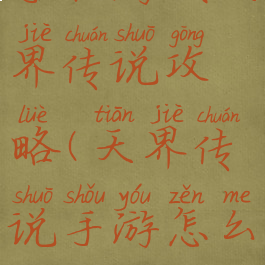 jiè chuán shuō gōng
界传说攻
lüè tiān jiè chuán
略(天界传
shuō shǒu yóu zěn me
说手游怎么